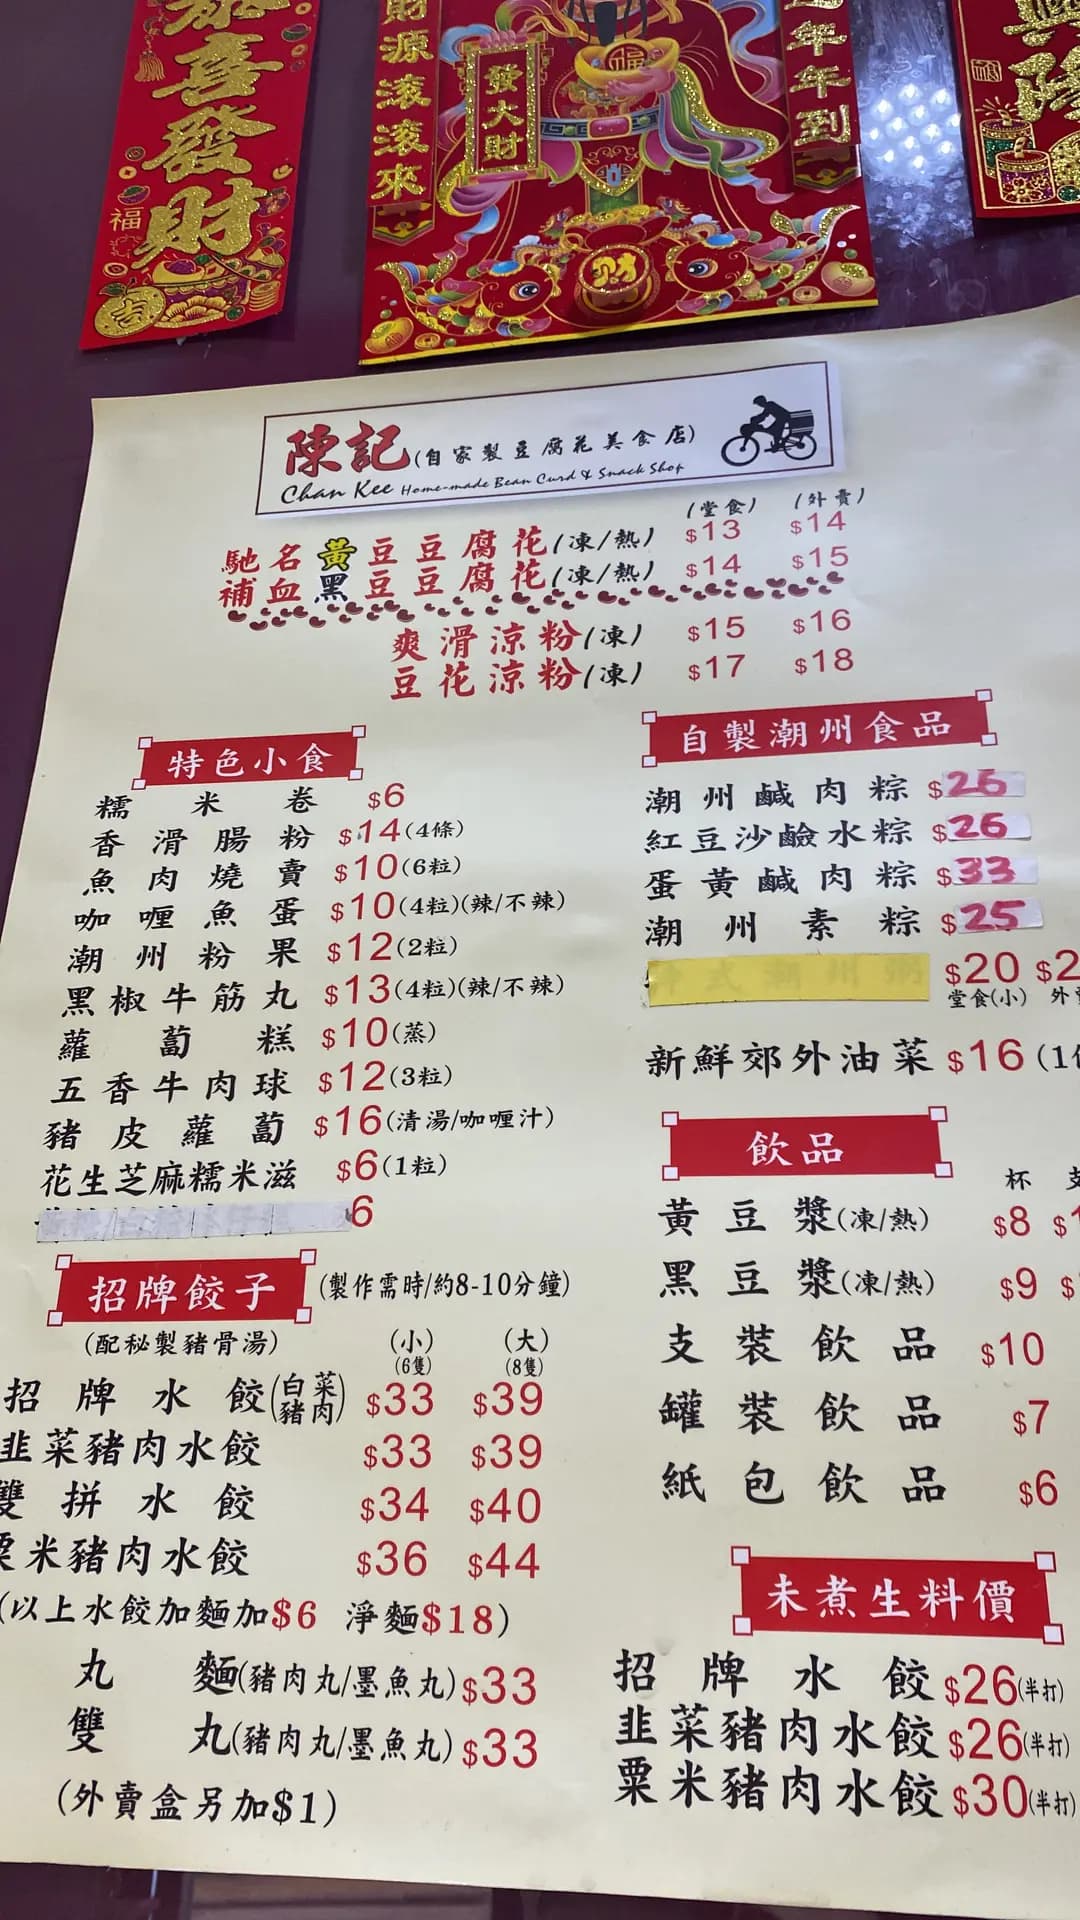 恭喜發財
福
吉
財源滾滾來
發大財
福
財
年年到
興隆
陳記(自家製豆腐花美食店)
Chan Kee Home-made Bean Curd & Snack Shop
(堂食) (外賣)
馳名黃豆豆腐花(凍/熱) $13 $14
補血黑豆豆腐花(凍/熱) $14 $15
爽滑涼粉(凍) $15 $16
豆花涼粉(凍) $17 $18
特色小食
糯米卷 $6
香滑腸粉 $14(4條)
魚肉燒賣 $10(6粒)
咖喱魚蛋 $10(4粒)(辣/不辣)
潮州粉果 $12(2粒)
黑椒牛筋丸 $13(4粒)(辣/不辣)
蘿蔔糕 $10(蒸)
五香牛肉球 $12(3粒)
豬皮蘿蔔 $16(清湯/咖喱汁)
花生芝麻糯米滋 $6(1粒)
6
自製潮州食品
潮州鹹肉粽 $26
紅豆沙鹼水粽 $26
蛋黃鹹肉粽 $33
潮州素粽 $25
$20 $2
堂食(小) 外賣
新鮮郊外油菜 $16 (1
飲品
杯 支
黃豆漿(凍/熱) $8 $1
黑豆漿(凍/熱) $9 $
支裝飲品 $10
罐裝飲品 $7
紙包飲品 $6
招牌餃子 (製作需時/約8-10分鐘)
(配秘製豬骨湯) (小) (大)
(6隻) (8隻)
招牌水餃(白菜豬肉) $33 $39
韭菜豬肉水餃 $33 $39
雙拼水餃 $34 $40
粟米豬肉水餃 $36 $44
(以上水餃加麵加$6 淨麵$18)
丸麵(豬肉丸/墨魚丸) $33
雙丸(豬肉丸/墨魚丸) $33
(外賣盒另加$1)
未煮生料價
招牌水餃 $26(半打)
韭菜豬肉水餃 $26(半打)
粟米豬肉水餃 $30(半打)